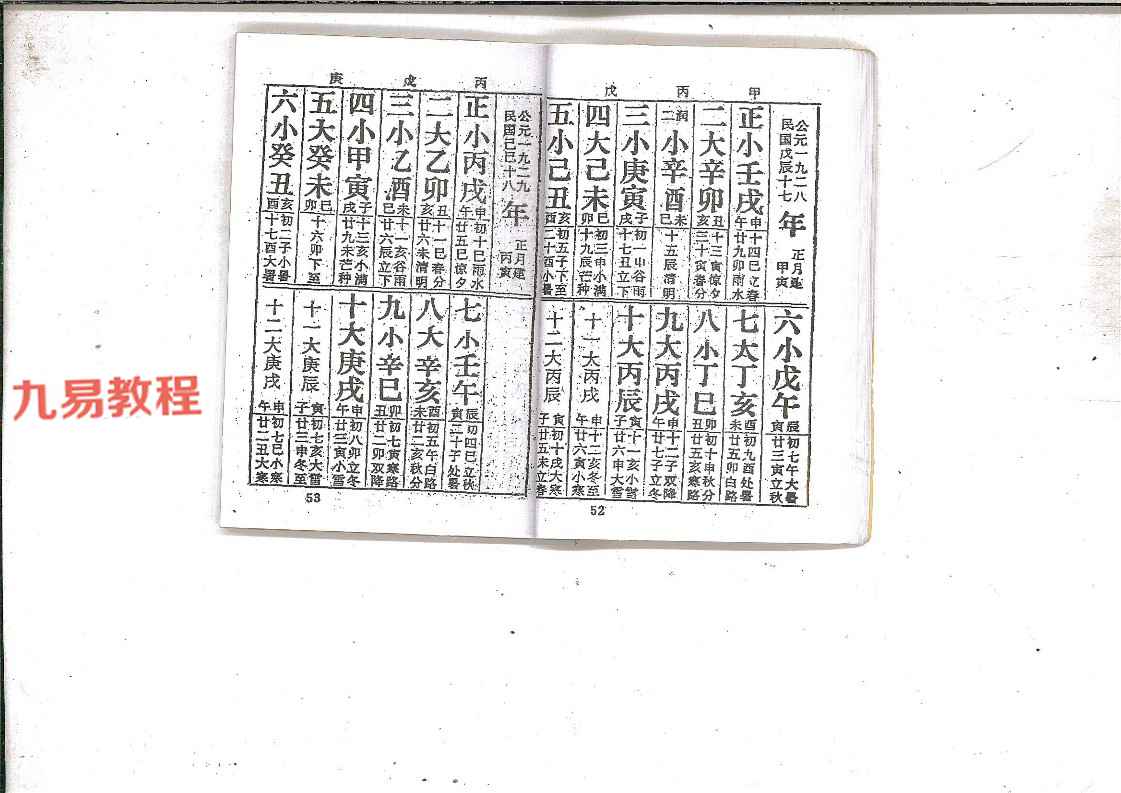 甲 丙 戊
公元一九二八
民国戊辰十七
年
正月建
甲寅
正小壬戌
申十四巳立春
午廿九卯雨水
二大辛卯
丑十三寅惊夕
亥三十寅春分
闰二小辛酉
未
巳十五辰清明
三小庚寅
子初一申谷雨
戌十七丑立下
四大己未
巳初三申小满
卯十九辰芒种
五小己丑
亥初五子下至
酉二十酉小暑
六小戊午
辰初七午大暑
寅廿三寅立秋
七大丁亥
酉初九酉处暑
未廿五卯白路
八小丁巳
卯初十申秋分
丑廿五亥寒路
九大丙戌
申十二子双降
午廿七子立冬
十大丙辰
寅十一亥小雪
子廿六申大雪
十一大丙戌
申十二亥冬至
午廿六寅小寒
十二大丙辰
寅初十戌大寒
子廿五未立春
52
丙 戊 庚
公元一九二九
民国己巳十八
年
正月建
丙寅
正小丙戌
申初十巳雨水
午廿五巳惊夕
二大乙卯
丑十一巳春分
亥廿六未清明
三小乙酉
未十一亥谷雨
巳廿六辰立下
四小甲寅
子十三亥小满
戌廿九未芒种
五大癸未
巳
卯十六卯下至
六小癸丑
亥初二子小暑
酉十七酉大暑
七小壬午
辰初四巳立秋
寅二十子处暑
八大辛亥
酉初五午白路
未廿二亥秋分
九小辛巳
卯初七寅寒路
丑廿二卯双降
十大庚戌
申初八卯立冬
午廿三寅小雪
十一大庚辰
寅初七亥大雪
子廿三申冬至
十二大庚戌
申初七巳小寒
午廿二丑大寒
53
九易教程